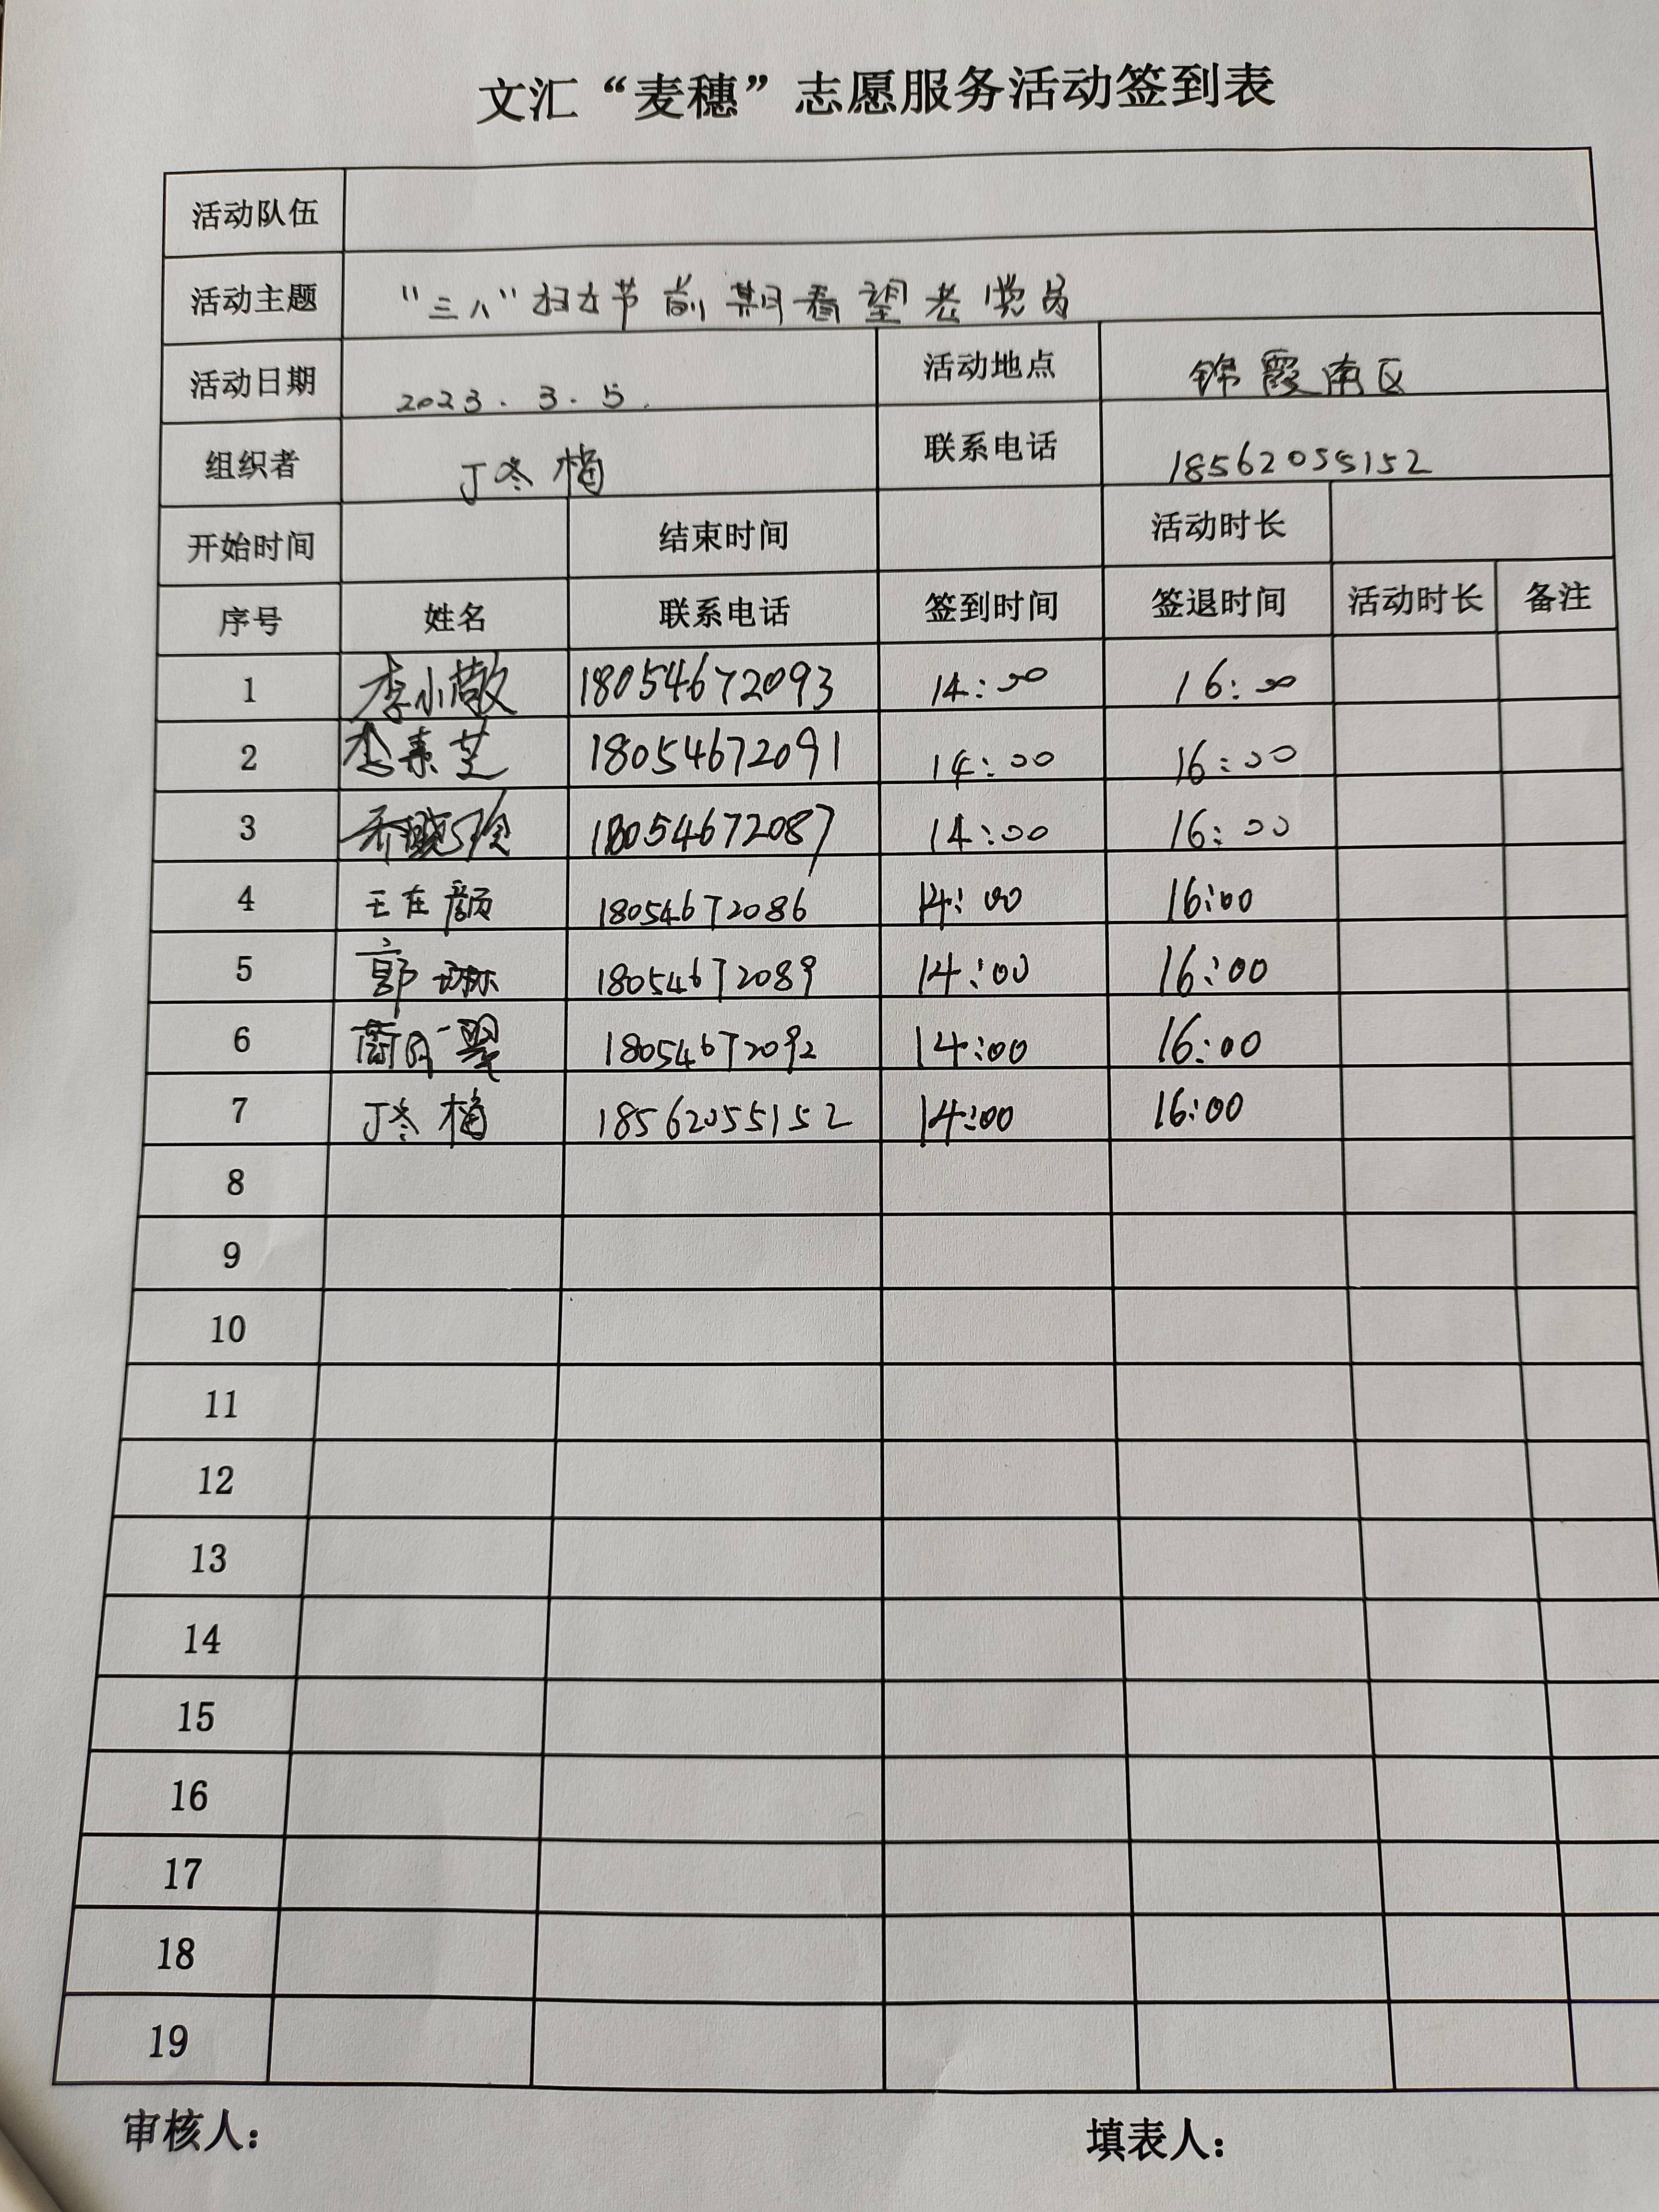 文汇“麦穗”志愿服务活动签到表
活动队伍
活动主题 “三八”妇女节前期看望老党员
活动日期 2023.3.5. 活动地点 锦霞南区
组织者 丁冬梅 联系电话 18562055152
开始时间 结束时间 活动时长
序号 姓名 联系电话 签到时间 签退时间 活动时长 备注
1 李小敬 18054672093 14:00 16:00
2 李素芝 18054672091 14:00 16:00
3 乔晓玲 18054672087 14:00 16:00
4 王在颜 18054672086 14:00 16:00
5 郭琳 18054672089 14:00 16:00
6 18054672092 14:00 16:00
7 丁冬梅 18562055152 14:00 16:00
8
9
10
11
12
13
14
15
16
17
18
19
审核人: 填表人: